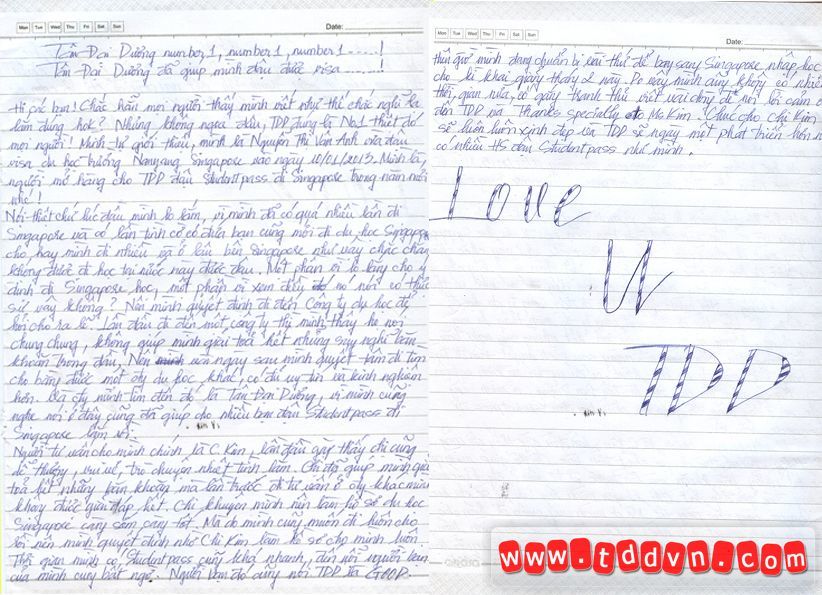 Mon Tue Wed Thu Fri Sat Sun Date:
Tân Đại Dương number 1, number 1, number 1 .....!
Tân Đại Dương đã giúp mình đậu được visa .....!
Hi các bạn! Chắc hẳn mọi người thấy mình viết như thế chắc nghĩ là
lầm đúng hok? Nhưng không ngoa đâu, TDD đúng là No.1 thiệt đó
mọi người! Mình tự giới thiệu, mình là Nguyễn Thị Vân Anh vừa đậu
visa du học trường Nanyang Singapore vào ngày 10/01/2013. Mình là
người mở hàng cho TDD đậu Student pass đi Singapore trong năm mới
nhé!
Nói thiệt chứ lúc đầu mình lo lắm, vì mình đã có quá nhiều lần đi
Singapore và có lần tình cờ có đứa bạn cũng mới đi du học Singapore
cho hay mình đi nhiều và ở lâu bên Singapore như vậy chắc chắn
không được đi học tại nước này được đâu. Một phần vì lo lắng cho ý
định đi Singapore học, một phần vì xem điều nó nói có thực
sự vậy không? Nên mình quyết định đi đến công ty du học để
hỏi cho ra lẽ. Lần đầu đi đến một công ty thì mình thấy họ nói
chung chung, không giúp mình giải toả hết những suy nghĩ băn
khoăn trong đầu, Nên ngay sau mình quyết tâm đi tìm
cho bằng được một cty du học khác, có đủ uy tín và kinh nghiệm
hơn. Và cty mình tìm đến đó là Tân Đại Dương, vì mình cũng
nghe nói ở đây cũng đã giúp cho nhiều bạn đậu Student pass đi
Singapore lắm rồi.
Người tư vấn cho mình chính là C. Kim, lần đầu gặp thấy chị cũng
dễ thương, vui vẻ, trò chuyện nhiệt tình lắm. Chị đã giúp mình giải
toả hết những băn khoăn mà lần trước đi tư vấn ở cty khác mình
không được giải đáp hết. Chị khuyên mình nên làm hồ sơ du học
Singapore càng sớm càng tốt. Mà do mình cũng muốn đi luôn cho
rồi nên mình quyết định nhờ Chị Kim làm hồ sơ cho mình luôn.
Thời gian mình có Student pass cũng khá nhanh, đến nỗi người bạn
của mình cũng bất ngờ. Người bạn đó cũng nói TDD là GOOD.
Mon Tue Wed Thu Fri Sat Sun
Date:
giờ mình đang chuẩn bị mọi thứ để bay sang Singapore nhập học
cho kì khai giảng tháng 2 này. Do vậy mình cũng không có nhiều
thời gian nữa, cố gắng tranh thủ viết vài dòng để nói lời cảm ơn
đến TDD và Thanks specially to Ms Kim. Chúc cho chị Kim
sẽ luôn luôn xinh đẹp và TDD sẽ ngày một phát triển hơn nữa
có nhiều HS đậu Student pass như mình.
Love
U
TDD
www.tddvn.com